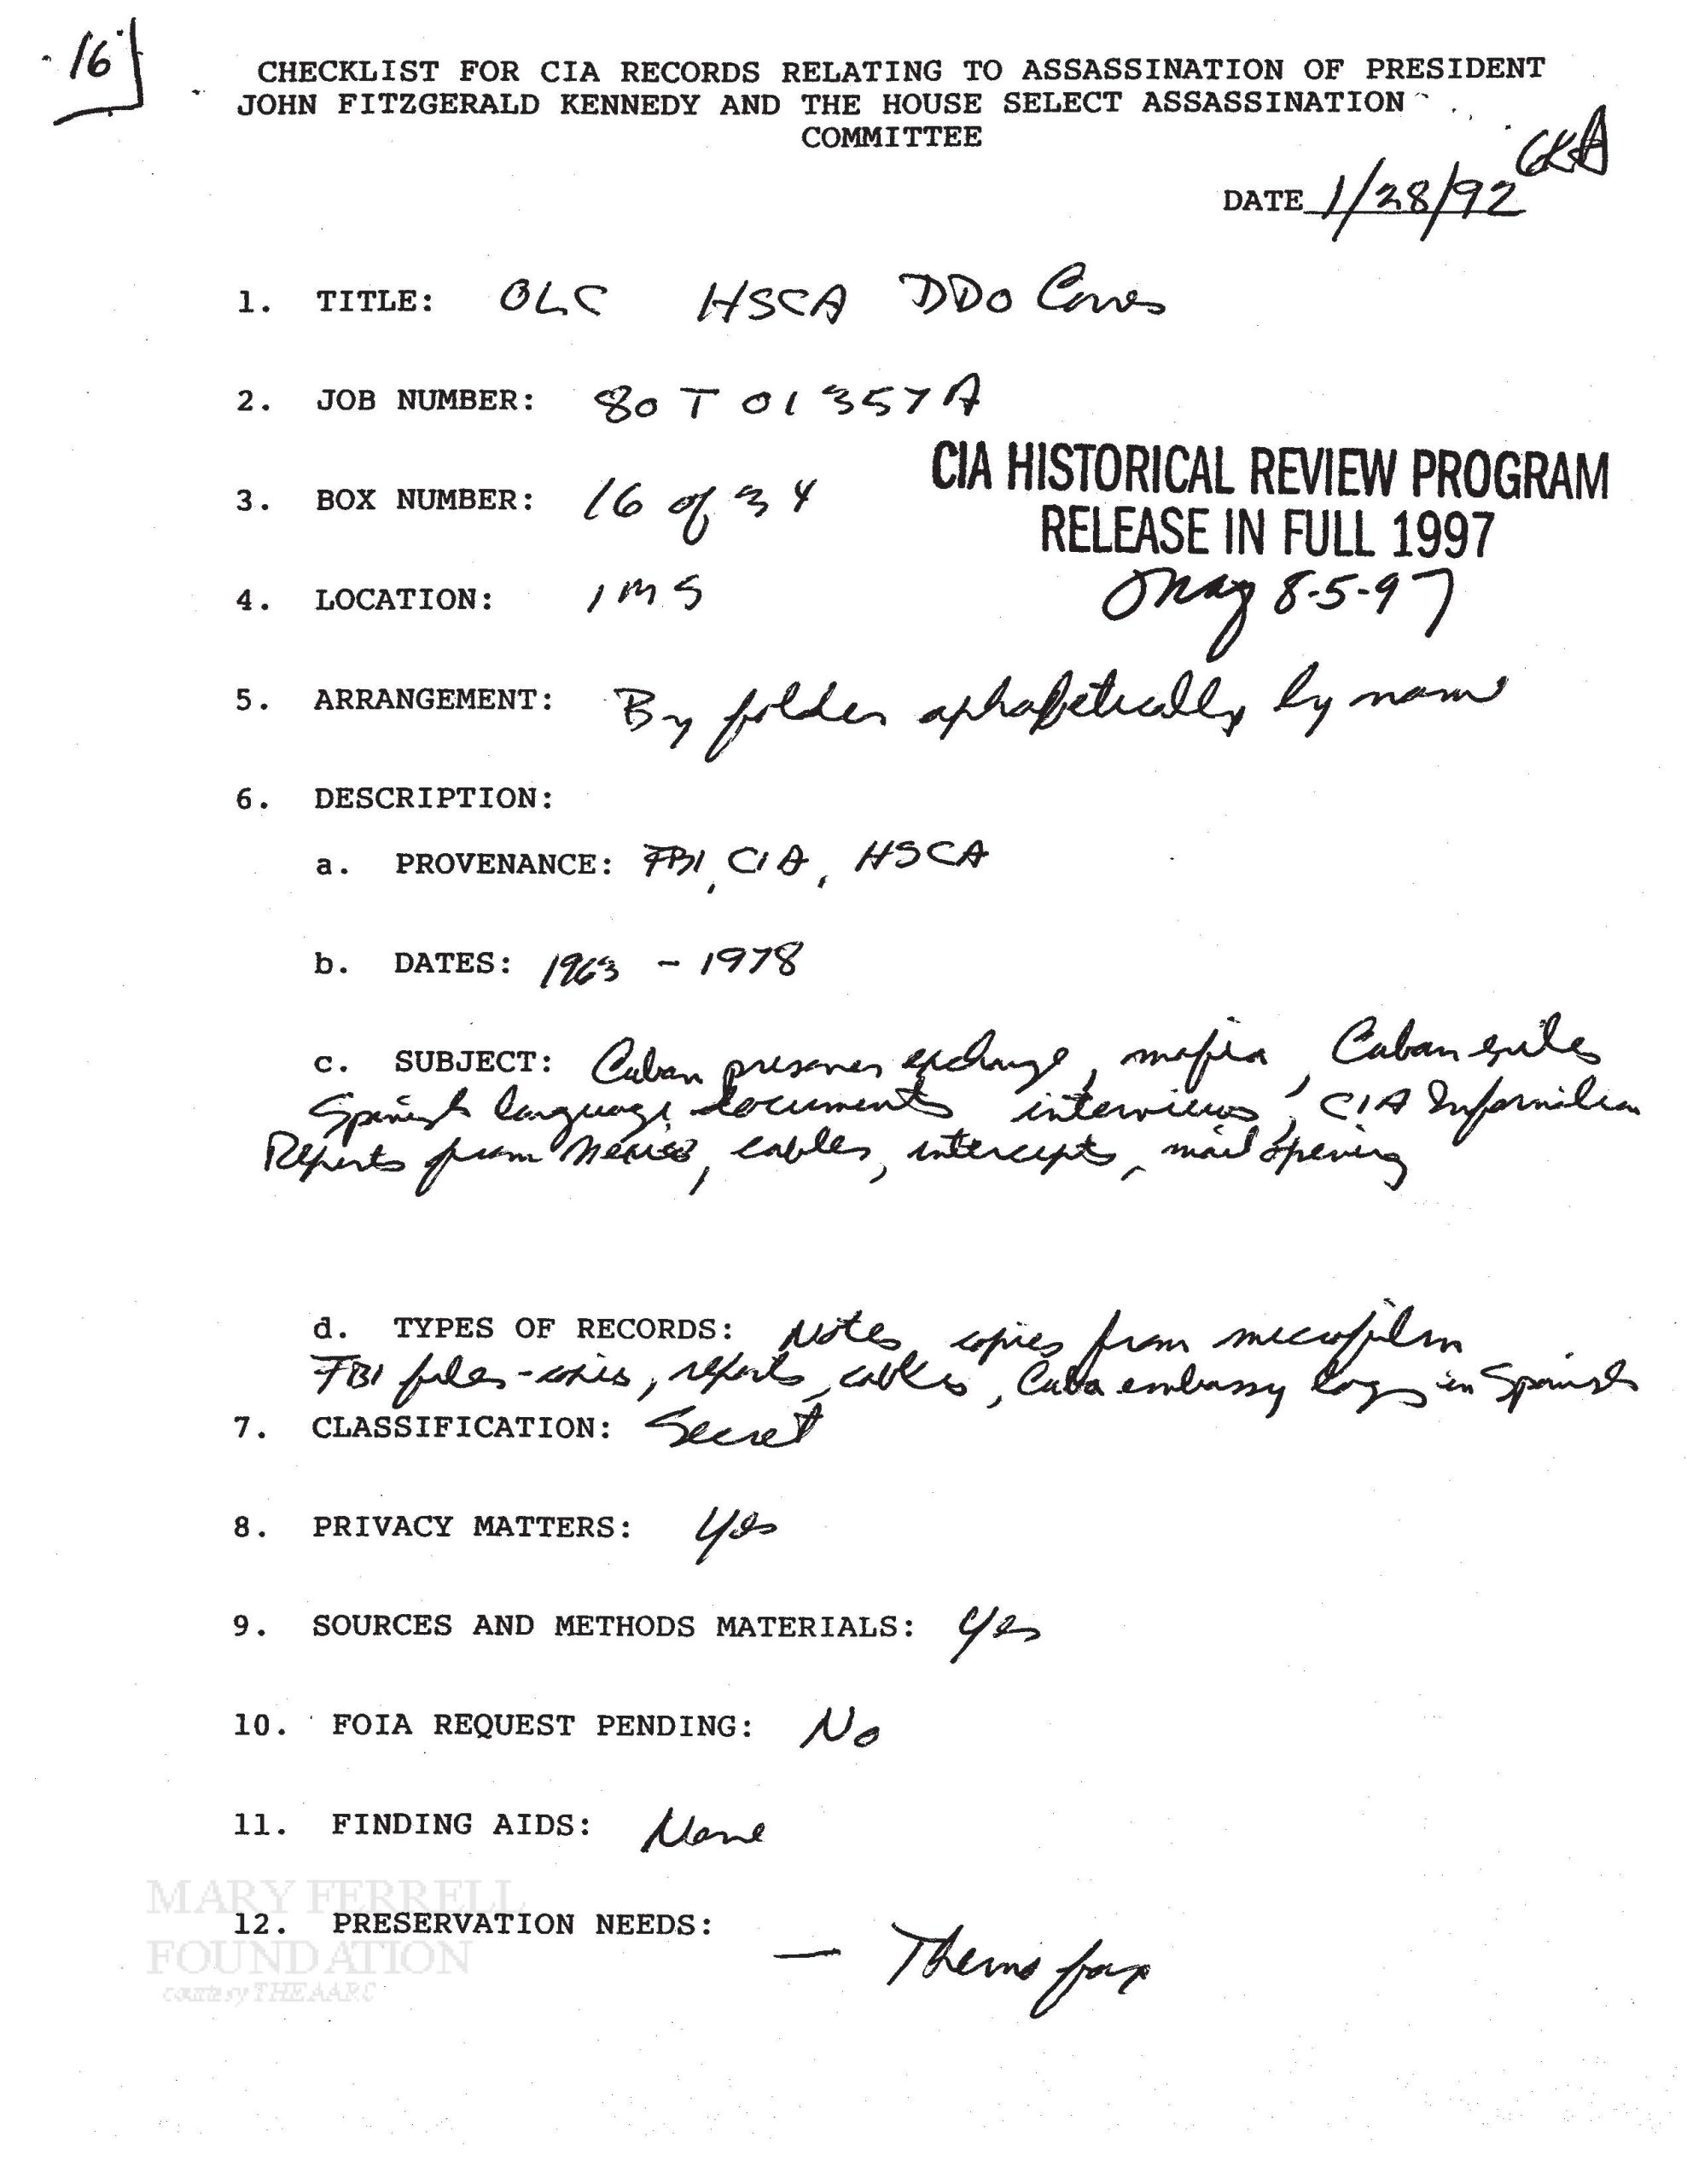 16
CHECKLIST FOR CIA RECORDS RELATING TO ASSASSINATION OF PRESIDENT
JOHN FITZGERALD KENNEDY AND THE HOUSE SELECT ASSASSINATION
COMMITTEE
DATE 1/28/92
1. TITLE: OLC HSCA DDO
2. JOB NUMBER: 80 T 01357A
CIA HISTORICAL REVIEW PROGRAM
RELEASE IN FULL 1997
3. BOX NUMBER: 16 of 34
4. LOCATION: IMS
8-5-97
5. ARRANGEMENT: By folder aphabetically by name
6. DESCRIPTION:
a. PROVENANCE: FBI, CIA, HSCA
b. DATES: 1963 - 1978
c. SUBJECT: Cuban prisoner exchange, mafia, Cuban exiles
Spanish language documents interviews, CIA Information
Reports from Mexico, cables, intercepts, mail opening
d. TYPES OF RECORDS: Notes copies from microfilm
FBI files-copies, reports, cables, Cuba embassy logs in Spanish
7. CLASSIFICATION: Secret
8. PRIVACY MATTERS: Yes
9. SOURCES AND METHODS MATERIALS: Yes
10. FOIA REQUEST PENDING: No
11. FINDING AIDS: None
12. PRESERVATION NEEDS: — Thermofax
MARY FERRELL
FOUNDATION
courtesy THE AARC